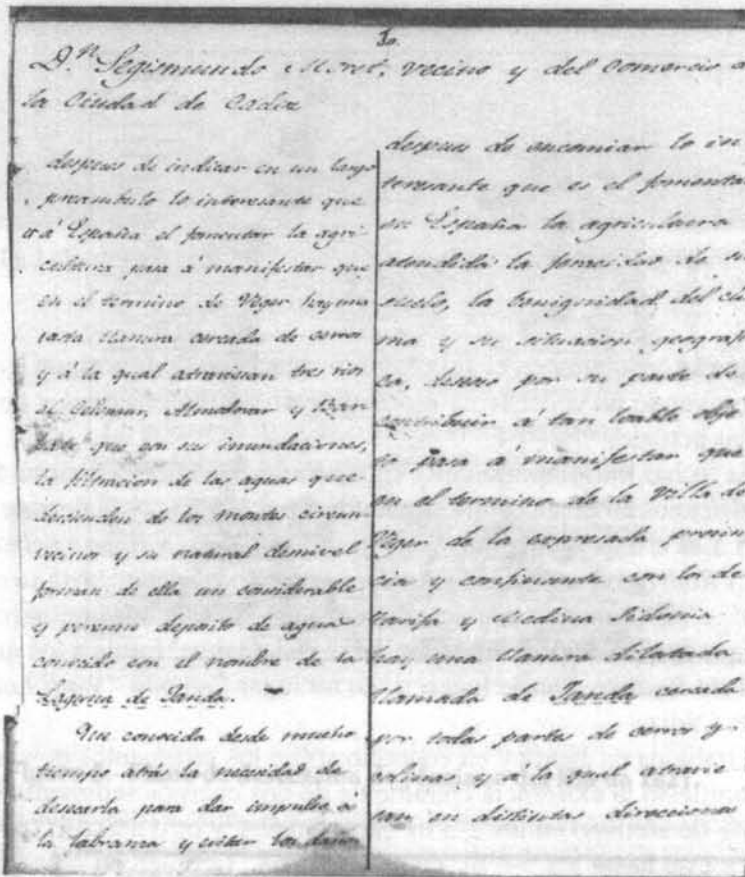 1.
D.n Segismundo Moret, vecino y del comercio d
la Ciudad de Cadiz
despues de indicar en un largo
preambulo lo interesante que
es á España el fomentar la agri-
cultura pasa á manifestar que
en el termino de Veger hay una
vasta llanura cercada de cerros
y á la qual atraviesan tres rios
el Celemin, Almodovar y Bar
bate que con sus inundaciones,
la filtracion de las aguas que
descienden de los montes circun
vecinos y su natural desnivel
forman de ella un considerable
y perenne deposito de agua
conocido con el nombre de la
Laguna de Janda.
Que conocida desde mucho
tiempo atrás la necesidad de
desecarla para dar impulso á
la labranza y evitar los daños
despues de encomiar lo in
teresante que es el fomentar
en España la agricultura
atendida la feracidad de su
suelo, la benignidad del cli
ma y su situacion geografi
ca, deseoso por su parte de
contribuir á tan loable obje
to pasa á manifestar que
en el termino de la Villa de
Veger de la expresada provin
cia y confinante con los de
Tarifa y Medina Sidonia
hay una llanura dilatada
llamada de Janda cercada
por todas partes de cerros y
colinas, y á la qual atravie
san en distintas direcciones